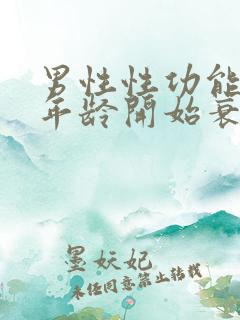 男性性功能
年龄開始衰
墨妖妃
未经同意禁止转载